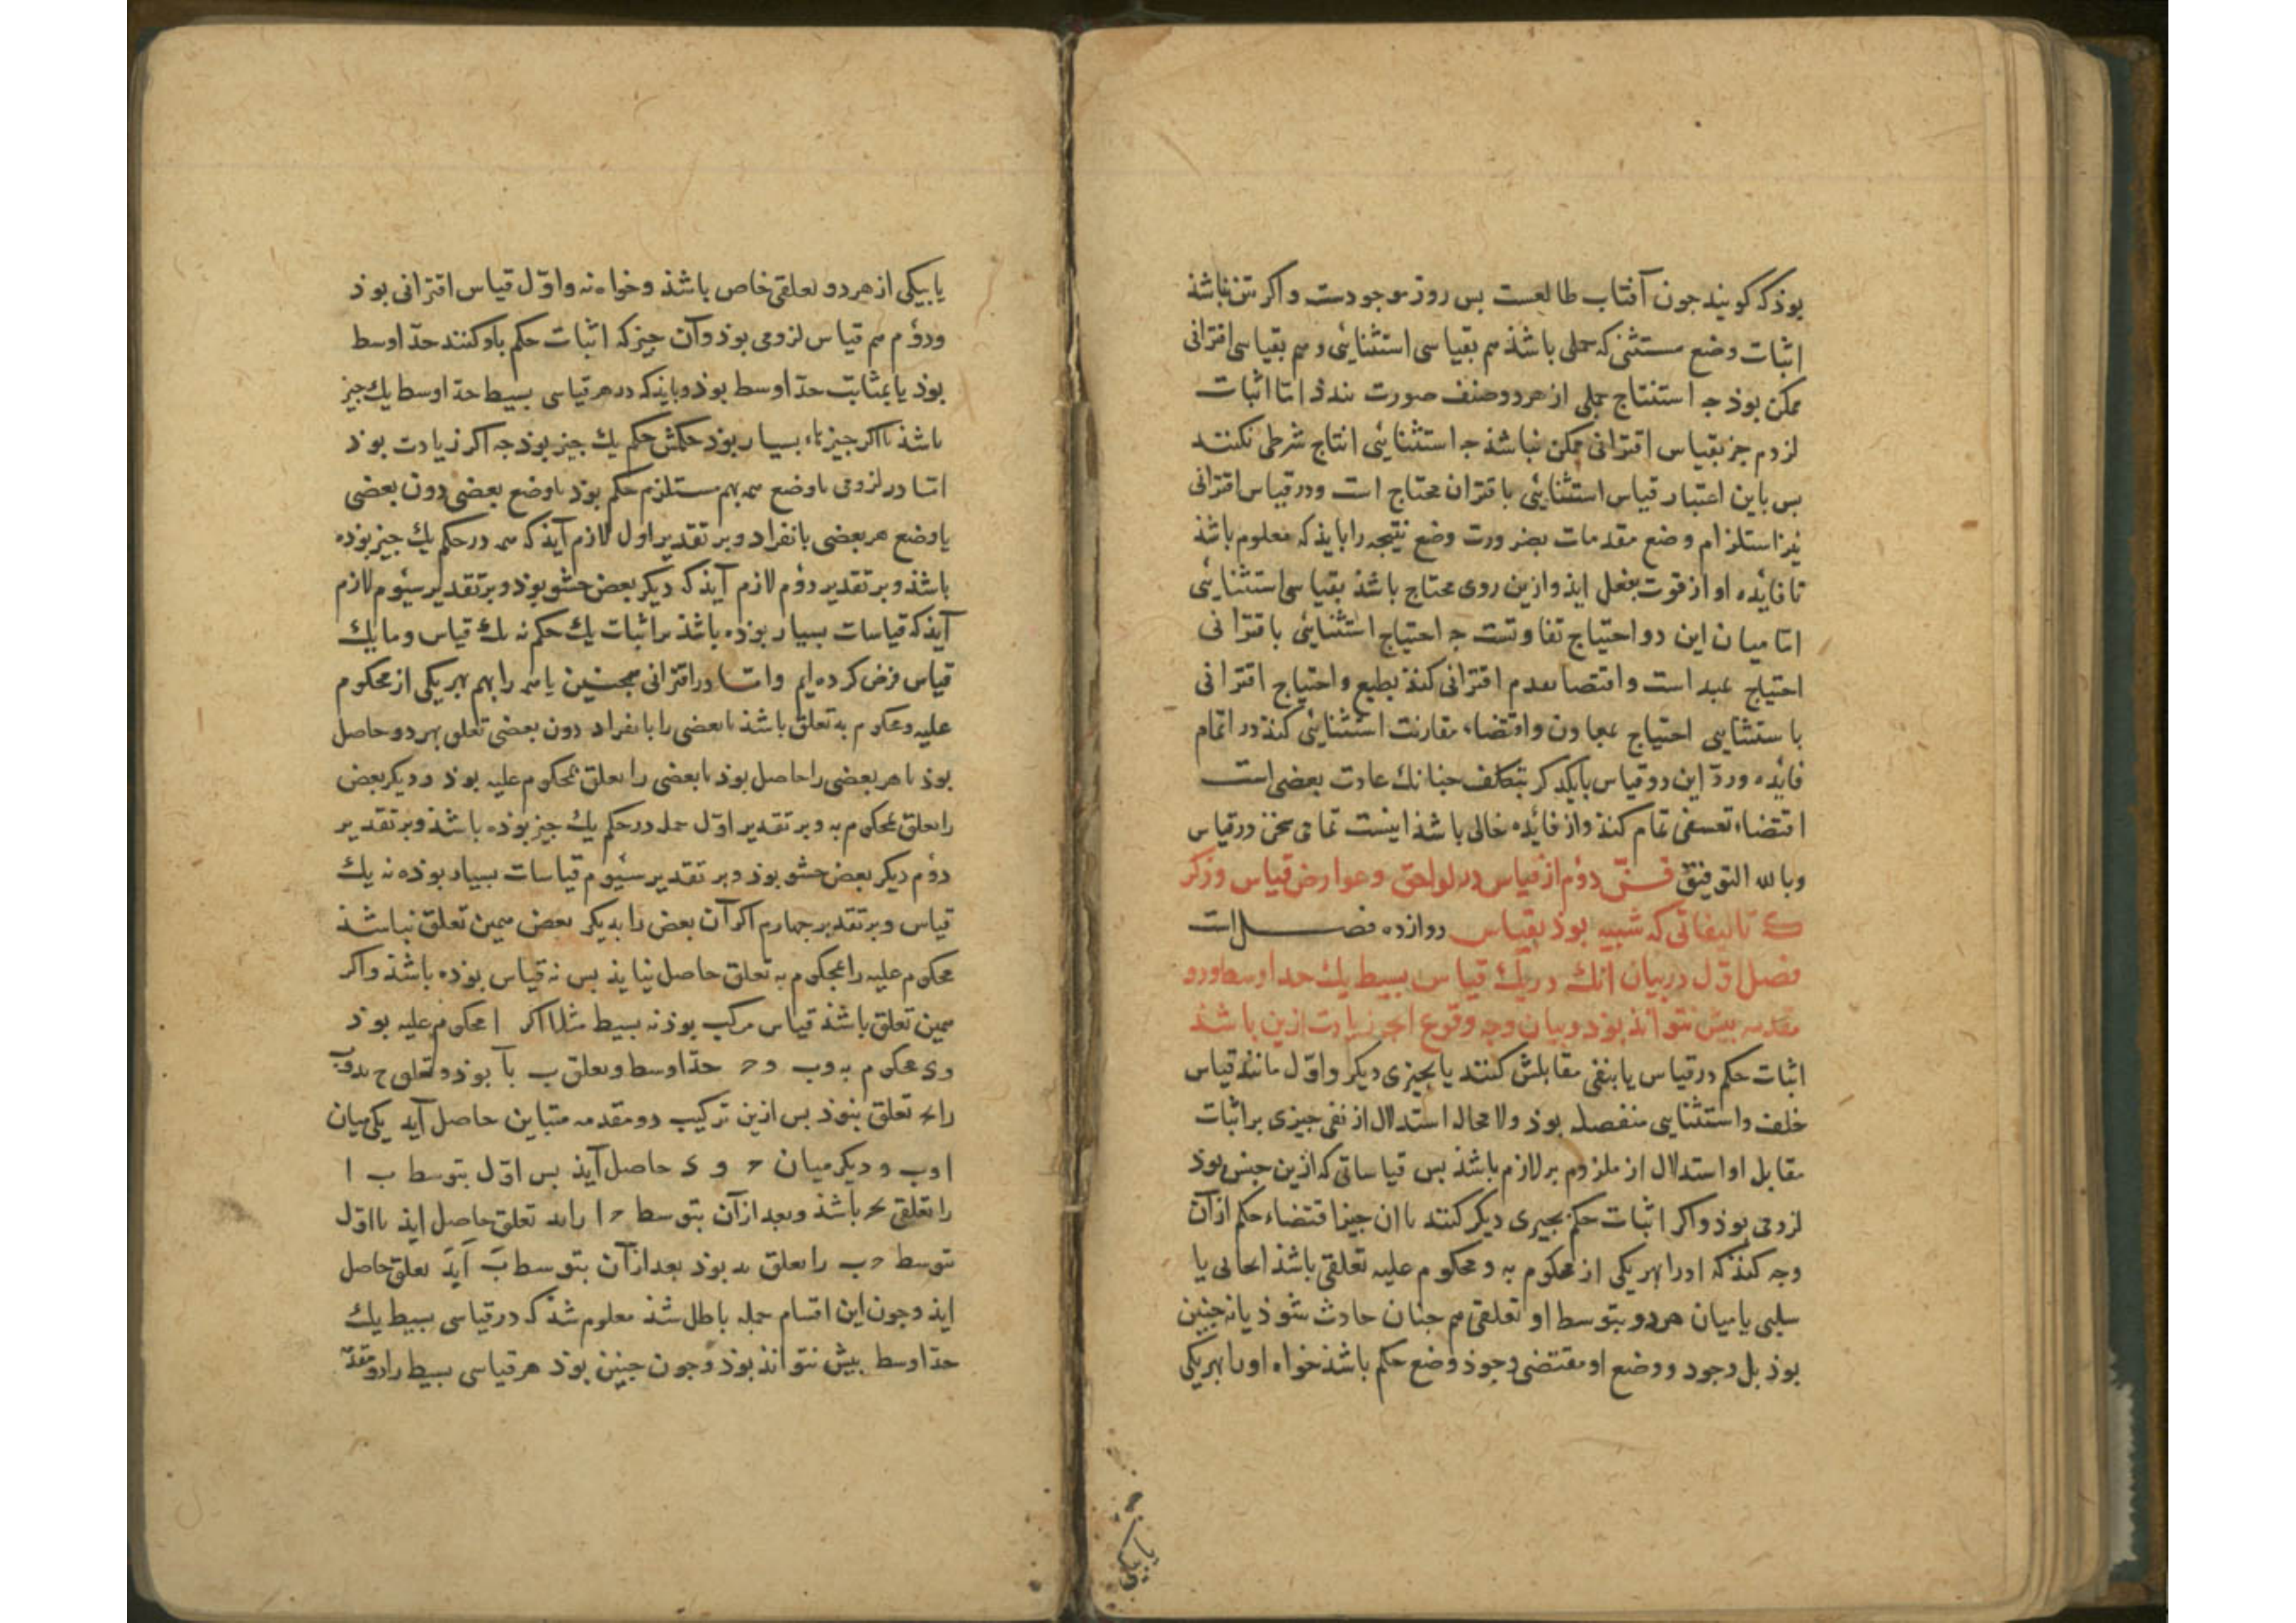 بوذ که کویند جون آفتاب طالعست بس روز موجودست واکر متن نباشذ
اثبات وضع مستثنی که حملی باشذ هم بقیاسی استثنایی وهم بقیاسی اقترانی
ممکن بوذ جه استنتاج حملی از هر دو صنف صورت بندذ اما اثبات
لزوم جز بقیاس اقترانی ممکن نباشذ جه استثنایی انتاج شرطی نکند
بس باین اعتبار قیاس استثنایی باقتران محتاج است ودر قیاس اقترانی
نیز استلزام وضع مقدمات بضرورت وضع نتیجه را بایذ که معلوم باشذ
تا فایده او از قوت بفعل ایذ وازین روی محتاج باشذ بقیاسی استثنایی
اما میان این دو احتیاج تفاوتست جه احتیاج استثنایی باقترانی
احتیاج است واقتضا تقدم اقترانی کنذ بطبع واحتیاج اقترانی
باستثنایی احتیاج واقتضاء مقارنت استثنایی کنذ در اتمام
فایده ورد این دو قیاس بایکدکر بتکلف جنانک عادت بعضی است
اقتضاء تعسفی تمام کنذ واز فائده خالی باشذ اینست تمامی سخن در قیاس
وبالله التوفیق فن دوم از قیاس در لواحق وعوارض قیاس وذکر
تالیفاتی که شبیه بوذ بقیاس دوازده فصل است
فصل اول در بیان آنک در یک قیاس بسیط یک حد اوسط ودو
مقدمه بیش نتوانذ بوذ وبیان وجه وقوع انجه زیادت ازین باشذ
اثبات حکم در قیاس یا بنفی مقابلش کنند یا بجیزی دیکر واول مانند قیاس
خلف واستثنایی منفصله بوذ ولا محاله استدلال از نفی جیزی بر اثبات
مقابل او استدلال از ملزوم بر لازم باشذ بس قیاساتی که ازین جنس بوذ
لزومی بوذ واکر اثبات حکم بجیزی دیکر کنند یا ان جیز اقتضاء حکم از آن
وجه کنذ که او را بهر یکی از محکوم به ومحکوم علیه تعلقی باشذ ایجابی یا
سلبی یا میان هر دو بتوسط او تعلقی هم جنان حادث شوذ یا نه جنین
بوذ بل وجود ووضع او مقتضی وجوذ وضع حکم باشذ خواه او را بهر یکی
یا بیکی از هر دو تعلقی خاص باشذ وخواه نه واول قیاس اقترانی بوذ
ودوم هم قیاس لزومی بوذ وآن جیز که اثبات حکم باو کنند حد اوسط
بوذ یا بمثابت حد اوسط بوذ وبایذ که در هر قیاسی بسیط حد اوسط یک جیز
باشذ یا اکر جیزهاء بسیار بوذ حکمش حکم یک جیز بوذ جه اکر زیادت بوذ
اما در لزومی یا وضع همه بهم مستلزم حکم بوذ یا وضع بعضی دون بعضی
یا وضع هر بعضی بانفراد وبر تقدیر اول لازم آیذ که همه در حکم یک جیز بوذه
باشذ وبر تقدیر دوم لازم آیذ که دیکر بعض حشو بوذ وبر تقدیر سیوم لازم
آیذ که قیاسات بسیار بوذه باشذ بر اثبات یک حکم نه یک قیاس وما یک
قیاس فرض کرده ایم واما در اقترانی همجنین یا همه را بهم بهر یکی از محکوم
علیه ومحکوم به تعلق باشذ یا بعضی را بانفراد دون بعضی تعلق بهر دو حاصل
بوذ یا هر بعضی را حاصل بوذ یا بعضی را تعلق بمحکوم علیه بوذ ودیکر بعض
را تعلق بمحکوم به وبر تقدیر اول جمله در حکم یک جیز بوذه باشذ وبر تقدیر
دوم دیکر بعض حشو بوذ وبر تقدیر سیوم قیاسات بسیار بوذه نه یک
قیاس وبر تقدیر جهارم اکر آن بعض را بدیکر بعض همین تعلق نباشذ
محکوم علیه را بمحکوم به تعلق حاصل نیایذ بس نه قیاس بوذه باشذ واکر
همین تعلق باشذ قیاس مرکب بوذ نه بسیط مثلا اکر ا محکوم علیه بوذ
و ی محکوم به وب و ح حد اوسط وتعلق ب با بوذ وتعلق ح
را تعلق بنوذ بس ازین ترکیب دو مقدمه متباین حاصل آید یکی میان
ا وب و دیکر میان ح و ی حاصل آیذ بس اول بتوسط ب ا
را تعلقی باشذ وبعد از آن بتوسط ح ا را تعلق حاصل ایذ یا اول
بتوسط ح ب را تعلق بوذ بعد از آن بتوسط ب تعلق حاصل
ایذ وجون این اقسام جمله باطل شذ معلوم شذ که در قیاسی بسیط یک
حد اوسط بیش نتوانذ بوذ وجون جنین بوذ هر قیاسی بسیط را دو مقدمه